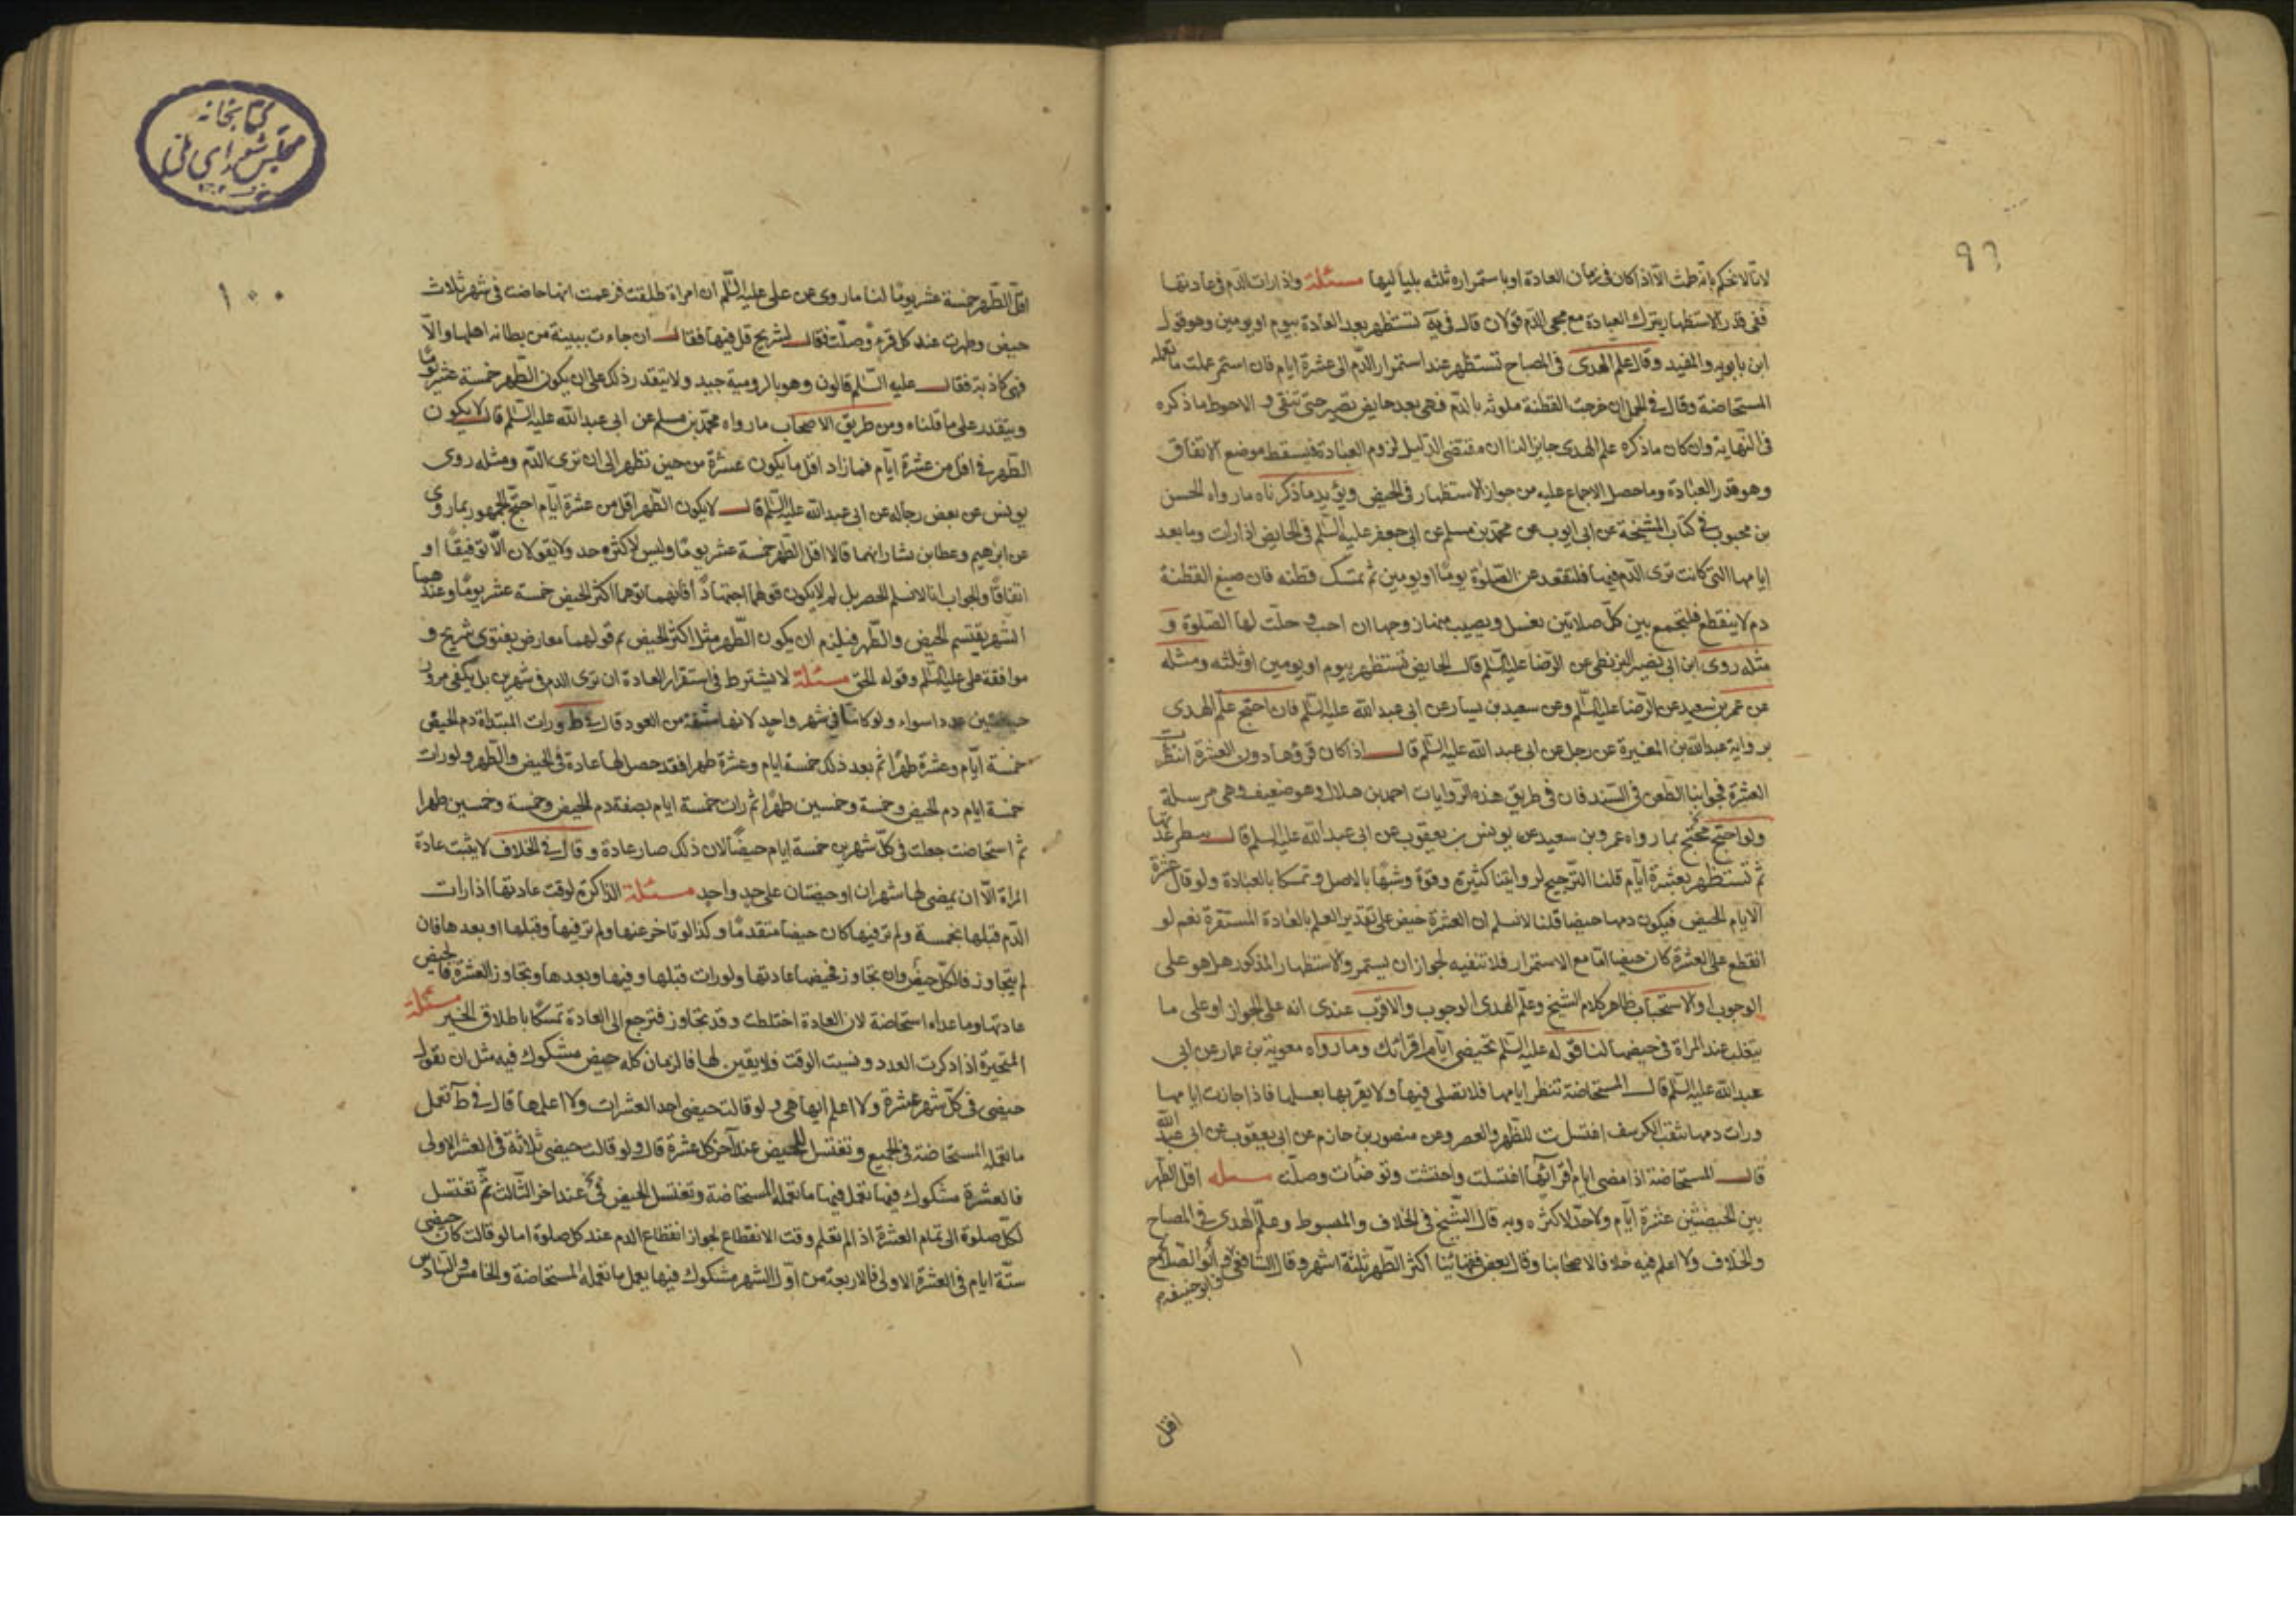 ٩٩
لانا لا نحكم بانه طمث الا اذا كان في زمان العادة او باستمراره ثلثه بلياليها مسئلة واذا رات الدم في عادتها
ففي قدر الاستظهار بترك العبادة مع مجئ الدم قولان قال في يه تستظهر بعد العادة بيوم او يومين وهو قول
ابن بابويه والمفيد وقال علم الهدى في المصباح تستظهر عند استمرار الدم الى عشرة ايام فان استمر عملت ما تعمله
المستحاضة وقال في الجمل ان خرجت القطنة ملوثه بالدم فهى بعد حايض تصبر حتى تنقى و الاحوط ما ذكره
في النهاية وان كان ما ذكره علم الهدى جايزا لنا ان مقتضى الدليل لزوم العبادة فيسقط موضع الاتفاق
وهو قدر العادة وما حصل الاجماع عليه من جواز الاستظهار في الحيض ويؤيد ما ذكرناه ما رواه الحسن
بن محبوب في كتاب المشيخة عن ابى ايوب عن محمد بن مسلم عن ابى جعفر عليه السلم في الحايض اذا رات دما بعد
ايامها التي كانت ترى الدم فيها فلتقعد عن الصلوة يوما او يومين ثم تمسك قطنه فان صبغ القطنة
دم لا ينقطع فلتجمع بين كل صلاتين بغسل ويصيب منها زوجها ان احب و حلت لها الصلوة و
مثله روى ابن ابى نصير البزنطى عن الرضا عليه السلم قال الحايض تستظهر بيوم او يومين او ثلثه ومثله
عن عمر بن سعيد عن الرضا عليه السلم وعن سعيد بن يسار عن ابى عبد الله عليه السلم فان احتج علم الهدى
برواية عبد الله بن المغيرة عن رجل عن ابى عبد الله عليه السلم قال اذا كان قروها دون العشرة انتظرت
العشرة فجوابنا الطعن في السند فان في طريق هذه الروايات احمد بن هلال وهو ضعيف وهي مرسلة
ولو احتج محتج بما رواه عمرو بن سعيد عن يونس بن يعقوب عن ابى عبد الله عليه السلم قال
ثم تستظهر بعشرة ايام قلنا الترجيح لروايتنا كثيرة وقوة وشبها بالاصل و تمسكا بالعبادة ولو قال عشرة
الايام الحيض فيكون دمها حيضا قلنا لا نسلم ان العشرة حيض على تقدير العلم بالعادة المستقرة نعم لو
انقطع على العشرة كان حيضا اما مع الاستمرار فلا تنفيه لجواز ان يستمر والاستظهار المذكور هل هو على
الوجوب او الاستحباب ظاهر كلام الشيخ وعلم الهدى الوجوب والاقرب عندى انه على الجواز او على ما
يتغلب عند المراة في حيضها لنا قوله عليه السلم تحيضى ايام اقرائك وما رواه معوية بن عمار عن ابى
عبد الله عليه السلم قال المستحاضة تنظر ايامها فلا تصلى فيها ولا يقربها بعلها فاذا جازت ايامها
ورات دمها ثقب الكرسف اغتسلت للظهر والعصر وعن منصور بن حازم عن ابى يعقوب عن ابى عبد الله
قال المستحاضة اذا مضى ايام اقرائها اغتسلت واحتشت وتوضات وصلت مسئله اقل الطهر
بين الحيضتين عشرة ايام ولا حد لاكثره وبه قال الشيخ في الخلاف والمبسوط وعلم الهدى في المصباح
والخلاف ولا اعلم فيه خلافا لاصحابنا وقال بعض فقهائنا اكثر الطهر ثلثة اشهر وقال الشافعى و ابو الصلاح
وابو حنيفه
اقل
كتابخانه
مجلس شوراى ملى
١٠٠
اقل الطهر خمسة عشر يوما لنا ما روى عن على عليه السلم ان امراة طلقت فزعمت انها حاضت في شهر ثلاث
حيض وطهرت عند كل قرء وصلت فقال لشريح قل فيها فقال ان جاءت ببينة من بطانه اهلها والا
فهى كاذبة فقال عليه السلم قالون وهو بالرومية جيد ولا يتقدر ذلك على ان يكون الطهر خمسة عشر يوما
ويتقدر على ما قلناه ومن طريق الاصحاب ما رواه محمد بن مسلم عن ابى عبد الله عليه السلم قال لا يكون
الطهر في اقل من عشرة ايام فما زاد اقل ما يكون عشرة من حين تطهر الى ان ترى الدم ومثله روى
يونس عن بعض رجاله عن ابى عبد الله عليه السلم قال لا يكون الطهر اقل من عشرة ايام احتج الجمهور بما روى
عن ابرهيم وعطا بن يشار انهما قالا اقل الطهر خمسة عشر يوما وليس لاكثره حد ولا يقولان الا توقيفا او
اتفاقا والجواب انا لا نسلم الحصر بل لم لا يكون قولهما اجتهادا فانهما توهما اكثر الحيض خمسة عشر يوما وعندهما
الشهر يقتسم الحيض والطهر فيلزم ان يكون الطهر مثل اكثر الحيض ثم قولهما معارض بفتوى شريح و
موافقة على عليه السلم وقوله الحق مسئلة لا يشترط في استقرار العادة ان ترى الدم في شهرين بل يكفى مرور
حيضتين عددا سواء ولو كانتا في شهر واحد لانها مشتقة من العود قال في ط ورات المبتداة دم الحيض
خمسة ايام وعشرة طهرا ثم بعد ذلك خمسة ايام وعشرة طهرا فقد حصل لها عادة في الحيض والطهر ولو رات
خمسة ايام دم الحيض وخمسة وخمسين طهرا ثم رات خمسة ايام بصفة دم الحيض وخمسة وخمسين طهرا
ثم استحاضت جعلت في كل شهرين خمسة ايام حيضا لان ذلك صار عادة و قال في الخلاف لا يثبت عادة
المراة الا ان يمضى لها شهران او حيضتان على حد واحد مسئلة الذاكرة لوقت عادتها اذا رات
الدم قبلها بخمسة ولم تر فيها كان حيضا متقدما وكذا لو تاخر عنها ولم تر فيها وقبلها او بعدها فان
لم يتجاوز فالكل حيض وان تجاوز فحيضها عادتها ولو رات قبلها وفيها وبعدها وتجاوز العشرة فالحيض
عادتها وما عداه استحاضة لان العادة اختلطت وقد تجاوز فترجع الى العادة تمسكا باطلاق الخبر مسئلة
المتحيرة اذا ذكرت العدد ونسيت الوقت فلا يقين لها فالزمان كله حيض مشكوك فيه مثل ان تقول
حيضى في كل شهر عشرة ولا اعلم ايها هي و لو قالت حيضى احد العشرات ولا اعلمها قال في ط تعمل
ما تعمله المستحاضة في الجميع وتغتسل للحيض عند آخر كل عشرة قال ولو قالت حيضى ثلاثة في العشر الاولى
فالعشرة مشكوك فيها تعمل فيها ما تعمله المستحاضة وتغتسل الحيض في عند اخر الثالث ثم تغتسل
لكل صلوة الى تمام العشرة اذا لم تعلم وقت الانقطاع لجواز انقطاع الدم عند كل صلوة اما لو قالت كان حيضى
ستة ايام في العشرة الاولى فالاربعة من اول الشهر مشكوك فيها يعمل ما تعمله المستحاضة والخامس والسادس